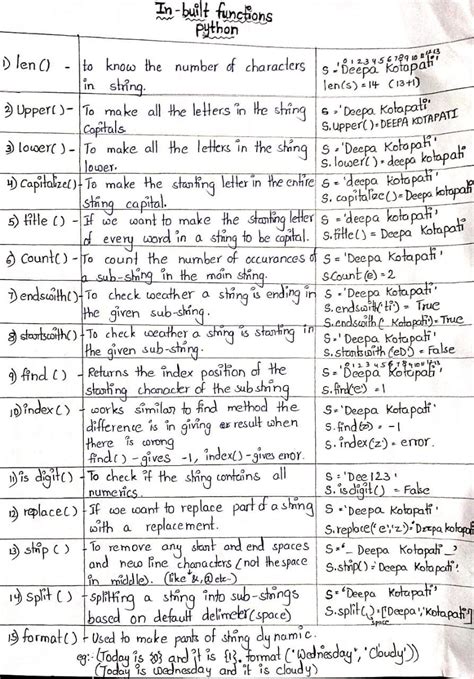 In-built functions
Python
1) len() - to know the number of characters in string. s='Deepa Kotapati' len(s)=14 (13+1)
2) Upper() - To make all the letters in the string Capitals. S='Deepa Kotapati' S.upper()=DEEPA KOTAPATI
3) lower() - To make all the letters in the string lower. S='Deepa Kotapati' S.lower()=deepa kotapati
4) Capitalize() - To make the starting letter in the entire string capital. S='deepa Kotapati' S.capitalize()=Deepa kotapati
5) title() - If we want to make the starting letter of every word in a string to be capital. S='deepa kotapati' S.title()=Deepa Kotapati
6) Count() - To count the number of occurances of a sub-string in the main string. S='Deepa Kotapati' SCount(e)=2
7) endswith() - To check weather a string is ending in the given sub-string. S='Deepa Kotapati' S.endswith('ti')=True S.endswith(' Kotapati)=True
8) startswith() - To check weather a string is starting in the given sub-string. S='Deepa Kotapati' S.startswith('eD')=False
9) find() - Returns the index position of the starting character of the substring S='Deepa Kotapati' S.find('e')=1
10) index() - works similar to find method the difference is in giving result when there is wrong find()-gives -1, index()-gives error. S='Deepa Kotapati' S.find(z)=-1 S.index(z)=error.
11) is digit() - To check if the string contains all numerics. S='Dee123' S.isdigit()=False
12) replace() - If we want to replace part of a string with a replacement. S='Deepa Kotapati' S.replace('e','z')=Dzzpa Kotapati
13) strip() - To remove any start and end spaces and new line characters (not the space in middle). (like &,@ etc-) S='_ Deepa Kotapati _' S.strip()=Deepa Kotapati
14) split() - splitting a string into sub-strings based on default delimeter(space) S='Deepa Kotapati' S.split()=['Deepa','Kotapati'] space
15) format() - Used to make parts of string dynamic.
eg:- (Today is {0} and it is {1}. format('Wednesday', 'Cloudy'))
(Today is Wednesday and it is cloudy)